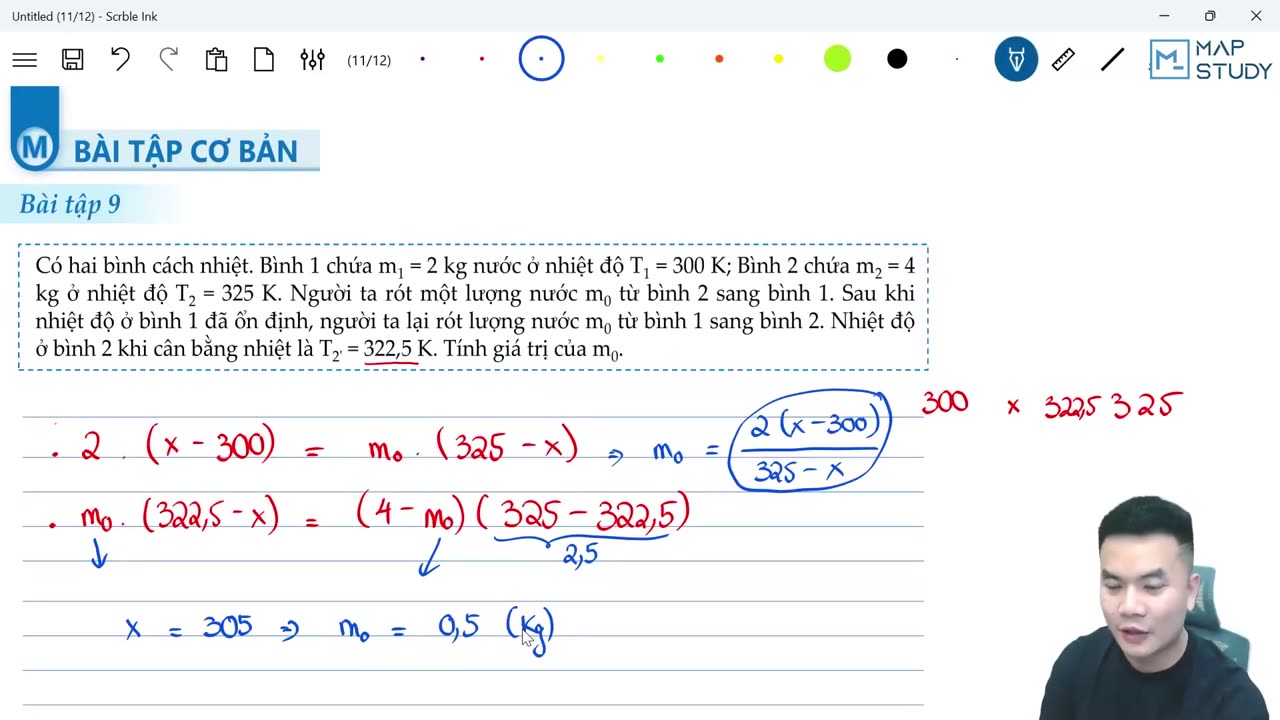 Untitled (11/12) - Scrble Ink
(11/12)
MAP
STUDY
M BÀI TẬP CƠ BẢN
Bài tập 9
Có hai bình cách nhiệt. Bình 1 chứa m₁ = 2 kg nước ở nhiệt độ T₁ = 300 K; Bình 2 chứa m₂ = 4
kg ở nhiệt độ T₂ = 325 K. Người ta rót một lượng nước m₀ từ bình 2 sang bình 1. Sau khi
nhiệt độ ở bình 1 đã ổn định, người ta lại rót lượng nước m₀ từ bình 1 sang bình 2. Nhiệt độ
ở bình 2 khi cân bằng nhiệt là T₂' = 322,5 K. Tính giá trị của m₀.
300 x 322,5 325
. 2 . (x - 300) = m₀ . (325 - x) => m₀ = 2(x-300) / 325 - x
. m₀ . (322,5 - x) = (4 - m₀)(325 - 322,5)
2,5
x = 305 => m₀ = 0,5 (kg)